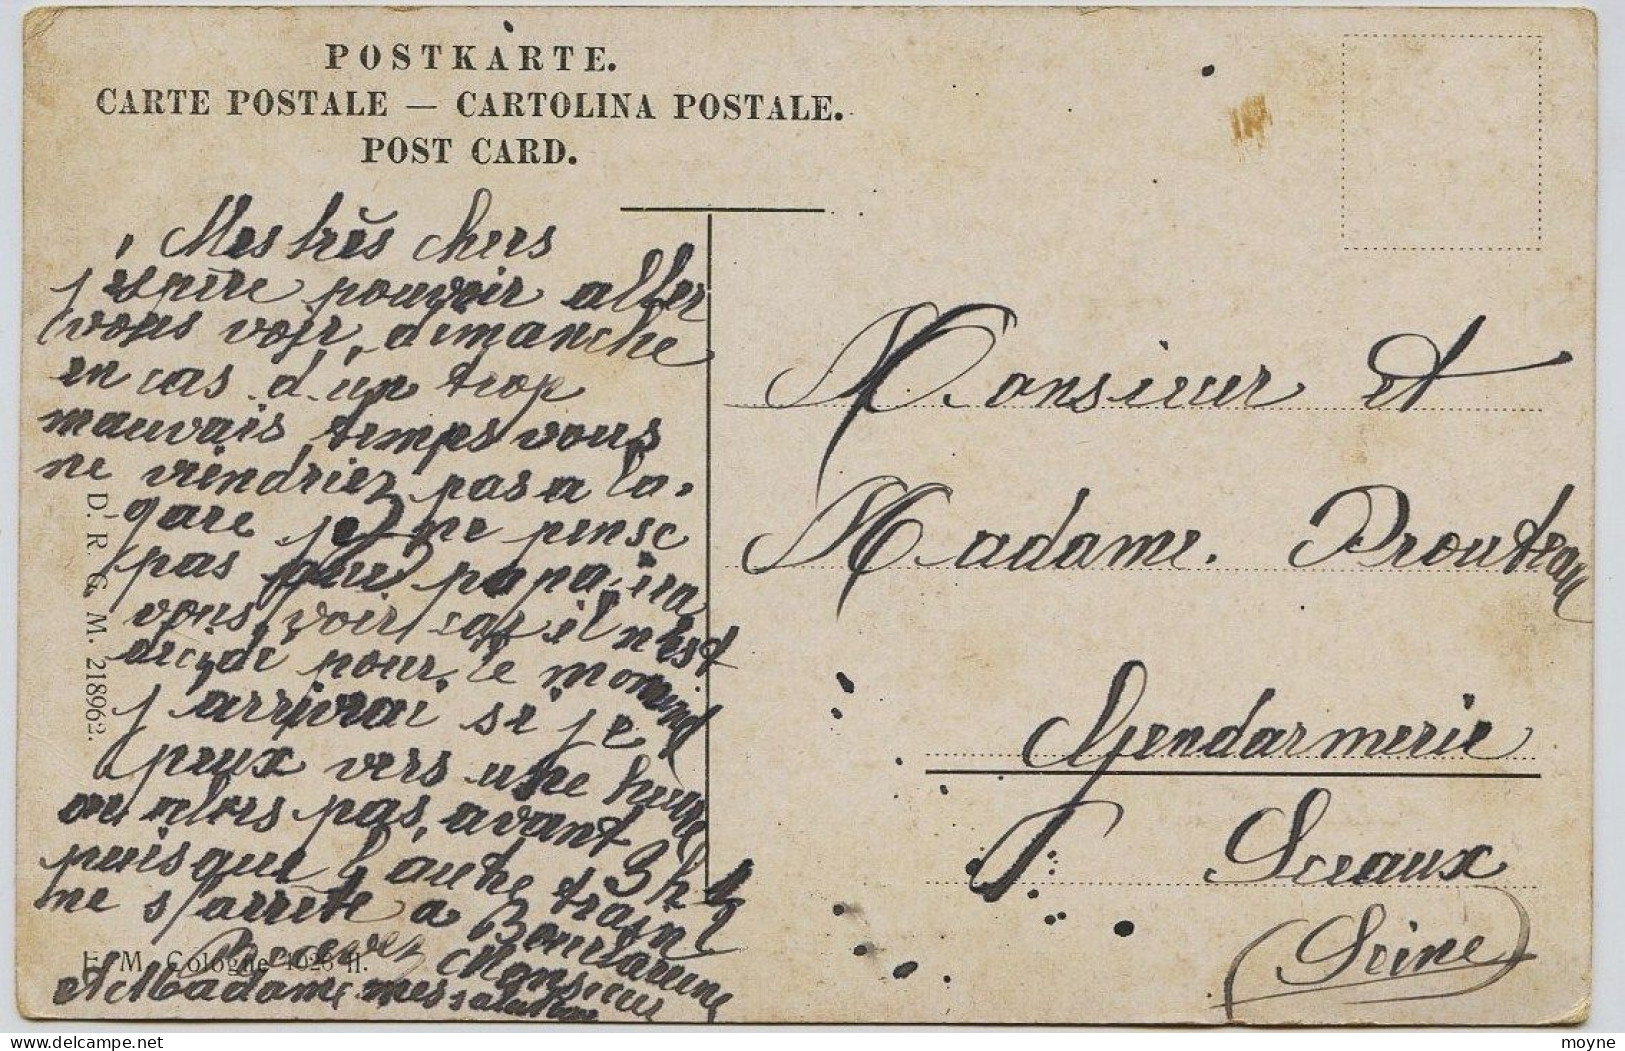 POSTKARTE.
CARTE POSTALE — CARTOLINA POSTALE.
POST CARD.
Mes très chers
j'espère pouvoir aller
vous voir, dimanche
en cas d'un trop
mauvais temps vous
ne viendriez pas a la
gare je ne pense
pas que papa ira
vous voir car il n'est
décidé pour le moment
j'arriverai si je
peux vers une heure
ou alors pas, avant 3h 1/2
puisque l'autre train
ne s'arrête a Bourlareine
Recevez Monsieur
et Madame mes salutations
Monsieur et
Madame. Prouteau
Gendarmerie
Sceaux
(Seine)
D. R. G. M. 218962.
E. M. Cologne 1026 II.
moyne